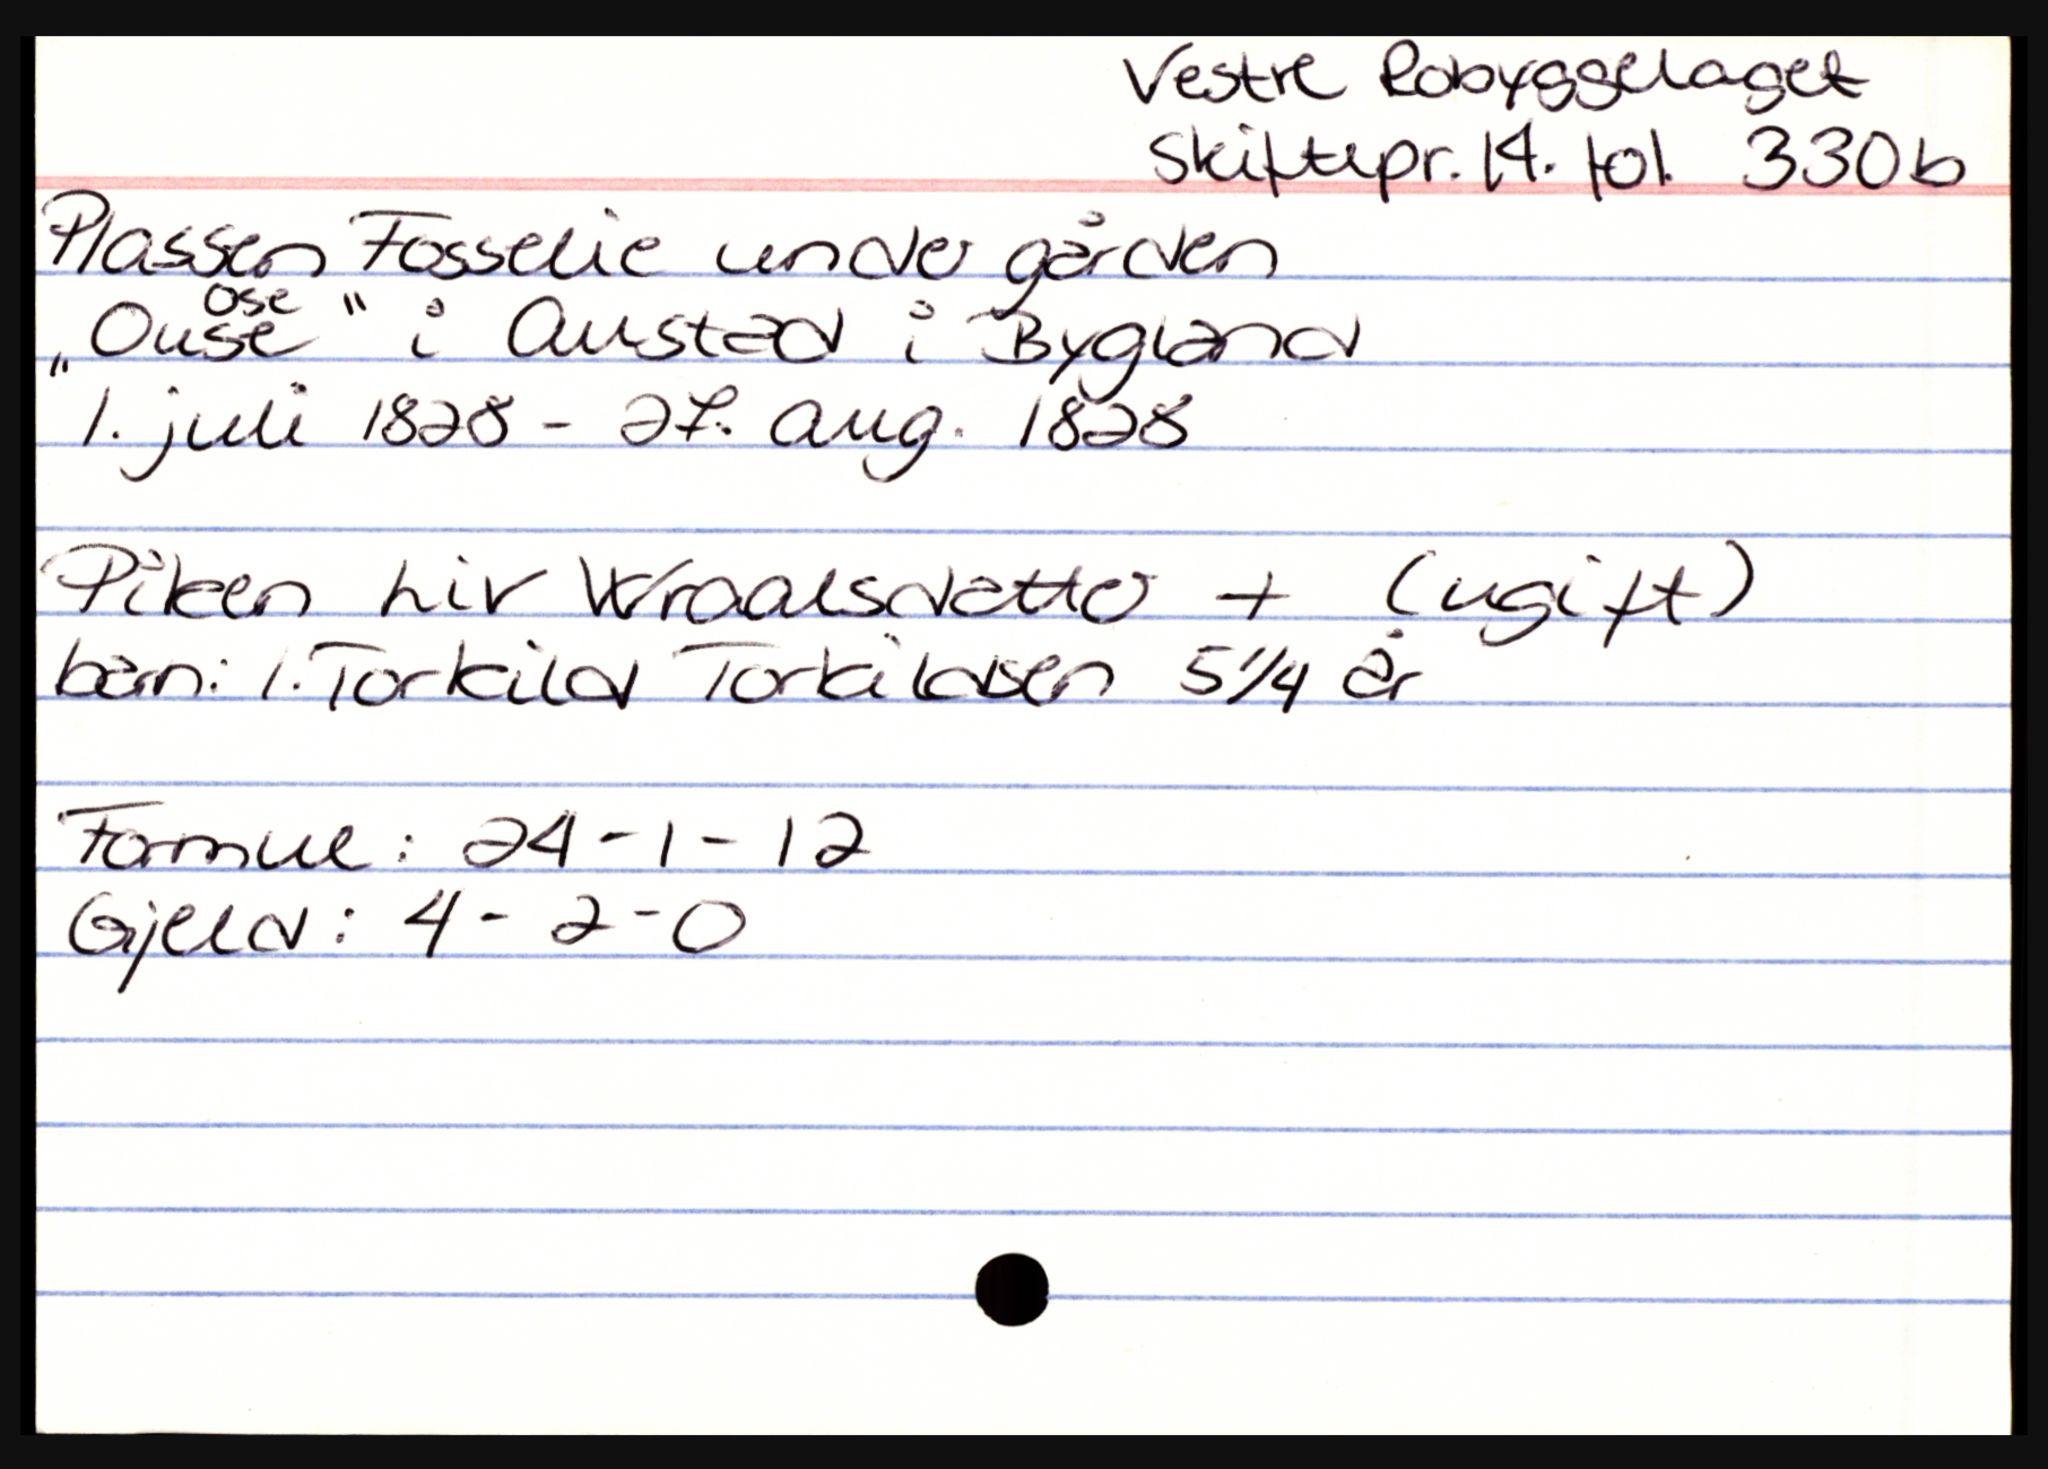 Vestre Robyggelaget
Skiftepr. 14. fol. 330b
Plassen Fosselie under gården
Ose
"Ouse" i Austad i Bygland
1. juli 1828 - 27. aug. 1828
Piken Liv Wraalsdatter + (ugift)
barn: 1. Torkild Torkildsen 5 1/4 år
Formue: 24 - 1 - 12
Gjeld: 4 - 2 - 0